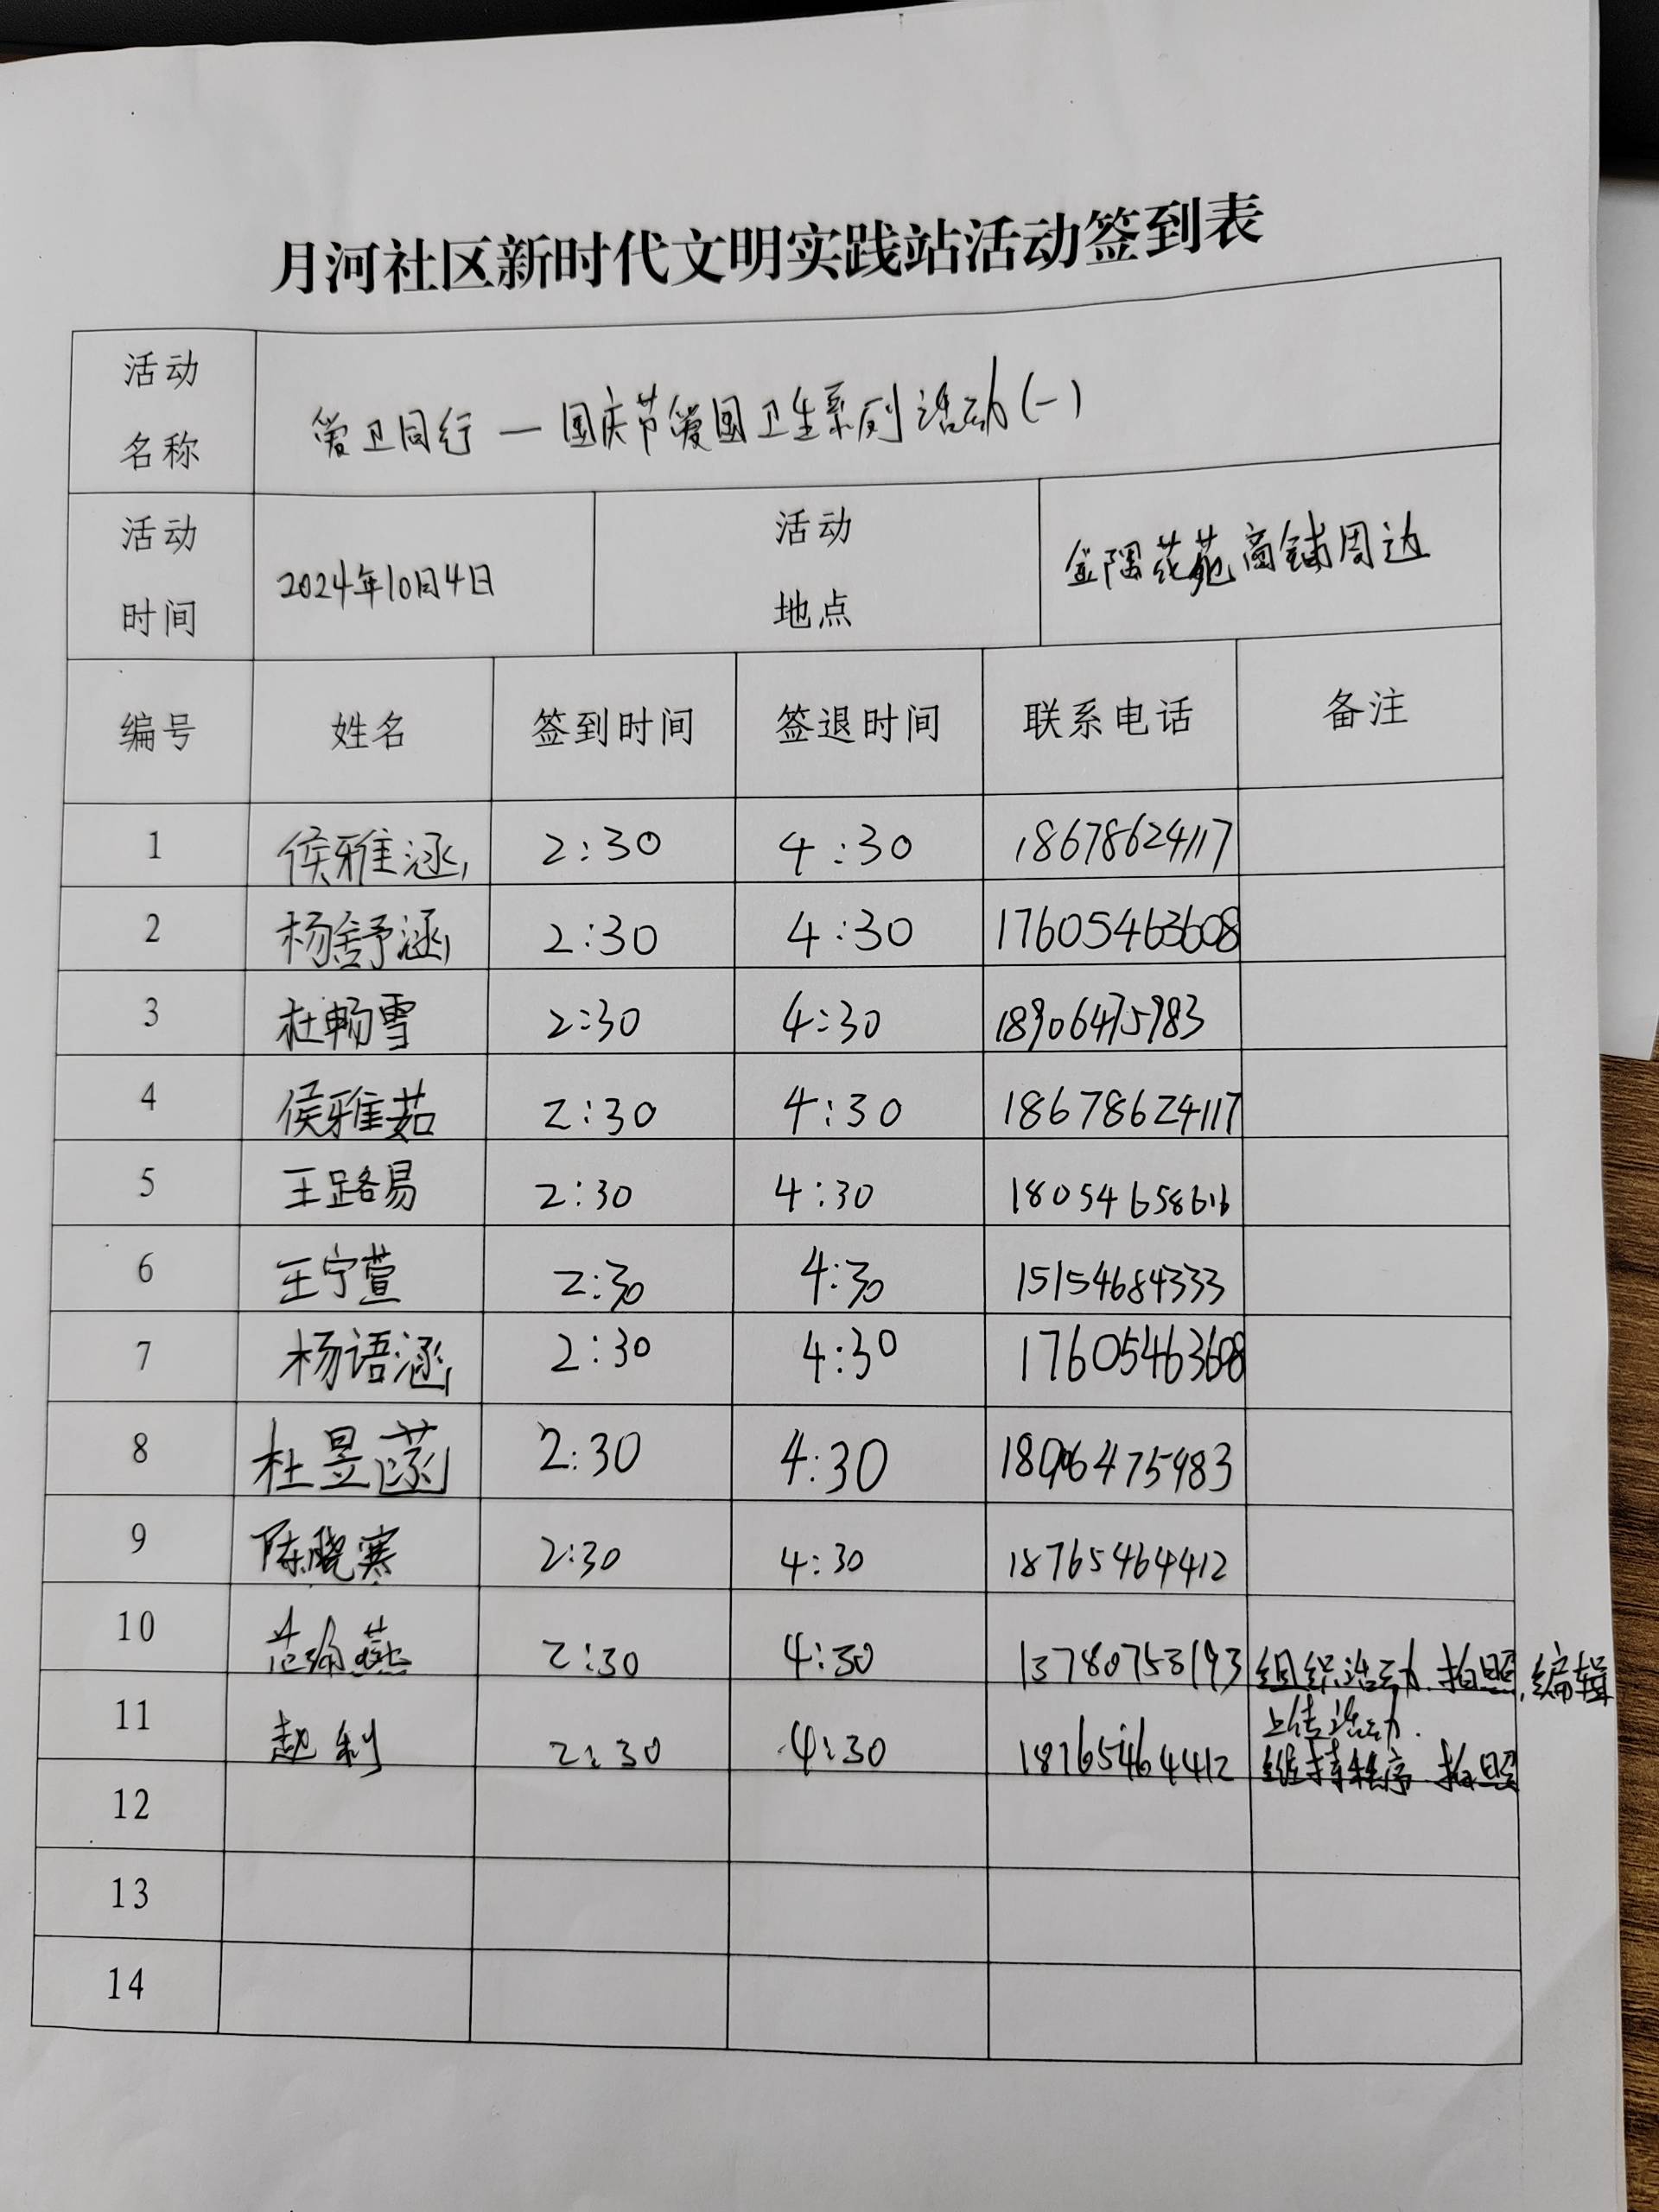 月河社区新时代文明实践站活动签到表
活动名称 爱卫同行一国庆节爱国卫生系列活动(一)
活动时间 2024年10月4日 活动地点 金隅花苑商铺周边
编号 姓名 签到时间 签退时间 联系电话 备注
1 侯雅涵 2:30 4:30 18678624117
2 杨舒涵 2:30 4:30 17605463608
3 杜畅雪 2:30 4:30 18906475983
4 侯雅茹 2:30 4:30 18678624117
5 王路易 2:30 4:30 18054658616
6 王宁萱 2:30 4:30 15154684333
7 杨语涵 2:30 4:30 17605463608
8 杜昱菡 2:30 4:30 18906475983
9 陈晓寒 2:30 4:30 18765464412
10 2:30 4:30 13780753193 组织活动.拍照,编辑
上传活动.
11 赵利 2:30 4:30 18765464412 维持秩序.拍照
12
13
14